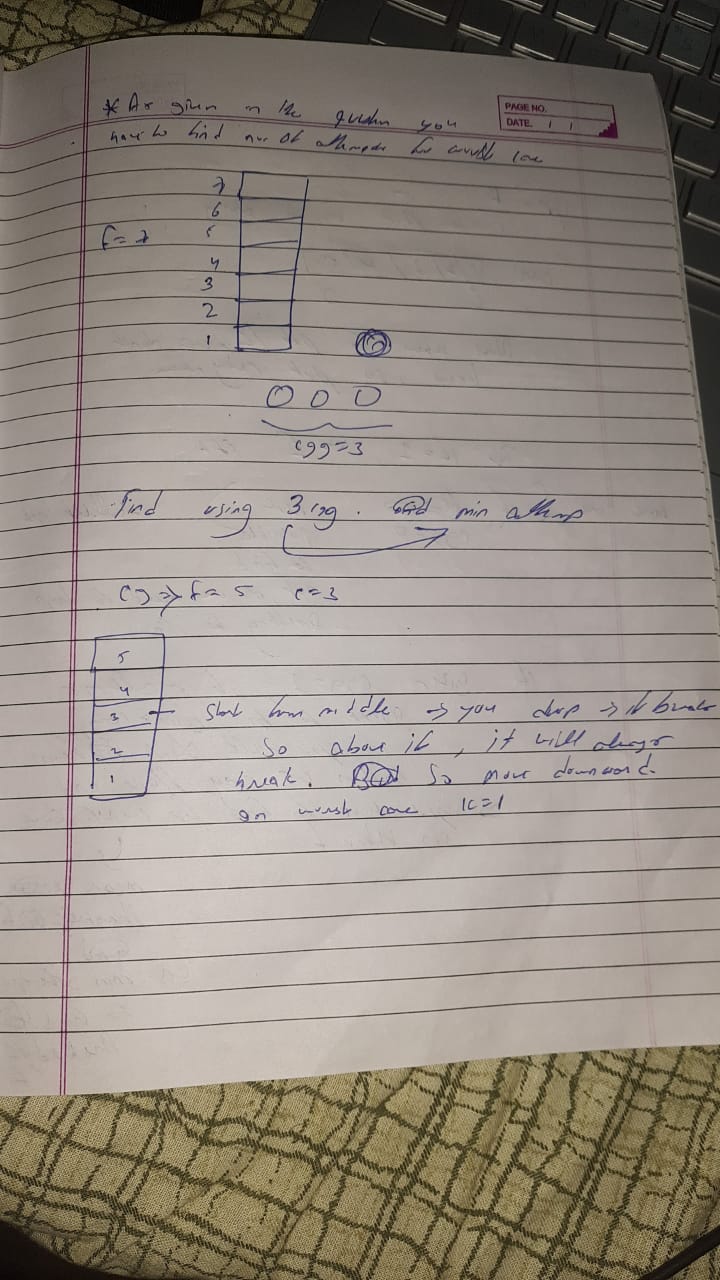 PAGE NO.
DATE. / /
* As given in the question you
have to find no. of attempts for worst case
7
6
f = 7 5
4
3
2
1
egg=3
find using 3 egg. min attemp
eg => f = 5 e=3
5
4
3 — Start from middle -> you drop -> if breaks
2 So above it, it will always
1 break. So move downward.
worst case k=1